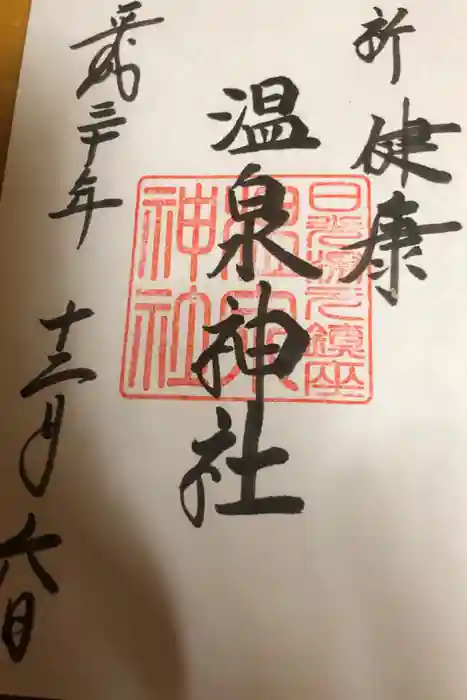 祈 健康
温泉神社
平成三十年 十二月 六日
日光湯元鎮座
温泉
神社